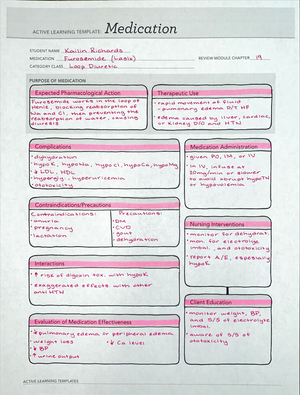 ACTIVE LEARNING TEMPLATE: Medication
STUDENT NAME Kailin Richards
MEDICATION Furosemide (Lasix) REVIEW MODULE CHAPTER 19
CATEGORY CLASS Loop Diuretic
PURPOSE OF MEDICATION
Expected Pharmacological Action
Furosemide works in the loop of
Henle, blocking reabsorption of
Na and Cl, then preventing the
reabsorption of water, causing
diuresis
Therapeutic Use
• rapid movement of fluid
- pulmonary edema D/T HF
• edema caused by liver, cardiac,
or Kidney D/O and HTN
Complications
• dyhydration
• hypoK, hypoNa, hypoCl, hypoCa, hypoMg
• ↓ LDL, HDL
• hypergly., hyperuricemia
• ototoxicity
Medication Administration
• given PO, IM, or IV
• in IV, infuse at
20mg/min or slower
to avoid abrupt hypoTN
or hypovolemia
Contraindications/Precautions
Contraindications:
• anuria
• pregnancy
• lactation
Precautions:
• DM
• CVD
• gout
• dehydration
Nursing Interventions
• monitor for dehydrat.
• mon. for electrolyte
imbal. and ototoxicity
• report A/E, especially
hypoK
Interactions
• ↑ risk of digoxin tox. with hypoK
• exaggerated effects with other
anti HTN
Client Education
• monitor weight, BP,
and S/S of electrolyte
imbal.
• aware of S/S of
ototoxicity
Evaluation of Medication Effectiveness
• ↓ pulmonary edema or peripheral edema
• weight loss • ↓ Ca level
• ↓ BP
• ↑ urine output
ACTIVE LEARNING TEMPLATES